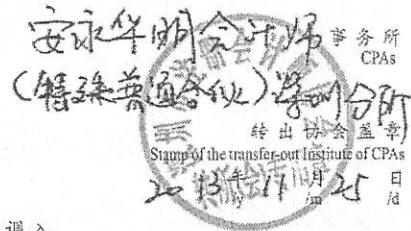 安永华明会计师事务所
CPAs
(特殊普通合伙)深圳分所
转出协会盖章
Stamp of the transfer-out Institute of CPAs
2013年11月25日
/y /m /d
调入